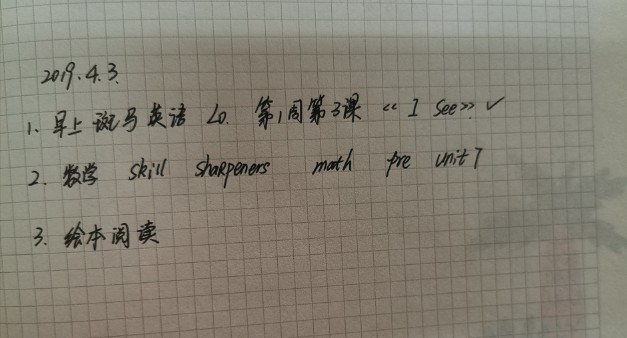 2019.4.3.
1、早上 斑马英语 L0. 第1周第3课 《I see》. ✓
2. 数学 skill sharpeners math pre unit 7
3. 绘本阅读